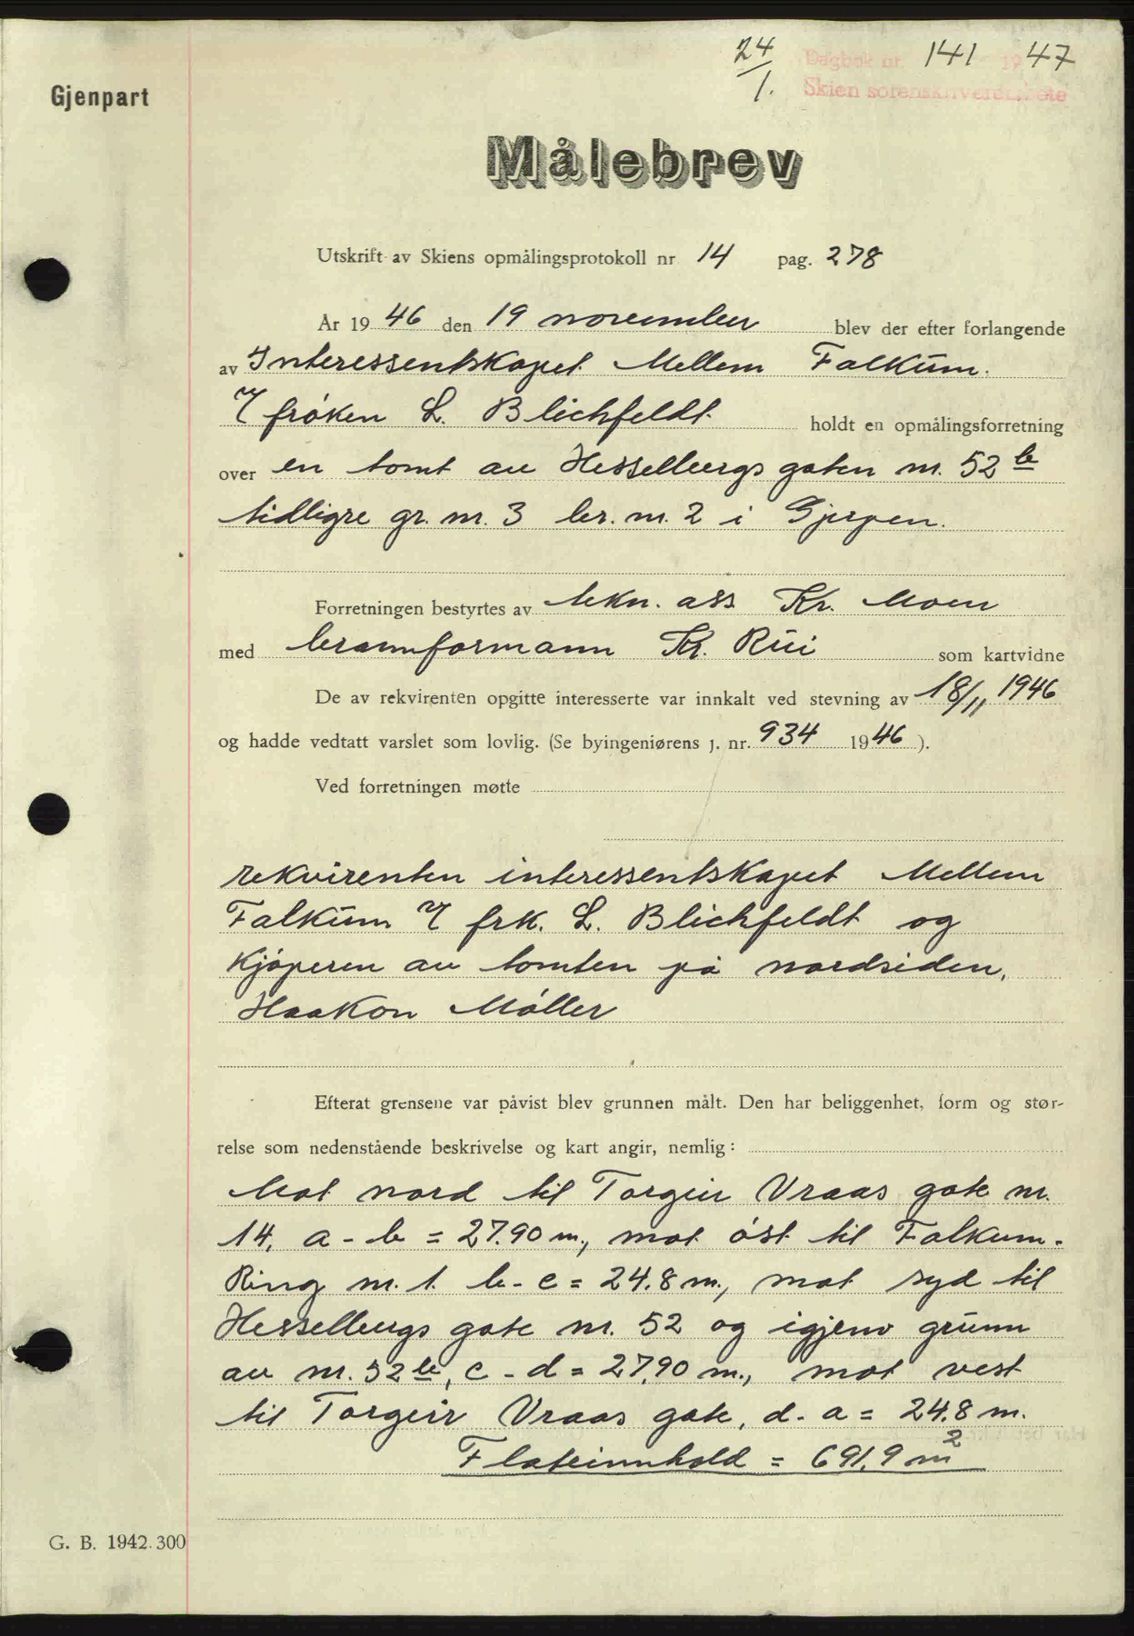 24/1. Dagbok nr. 141 1947
Skien sorenskriverembete
Gjenpart
Målebrev
Utskrift av Skiens opmålingsprotokoll nr 14 pag. 278
År 1946 den 19 november blev der efter forlangende
av Interessentskapet Mellem Falkum.
v/ frøken L. Blichfeldt holdt en opmålingsforretning
over en tomt av Hesselbergs gaten nr. 52 b
tidligre gr. nr. 3 br. nr. 2 i Gjerpen.
Forretningen bestyrtes av tekn. ass Kr. Moen
med brannformann Kr. Rui som kartvidne
De av rekvirenten opgitte interesserte var innkalt ved stevning av 18/11 1946
og hadde vedtatt varslet som lovlig. (Se byingeniørens j. nr. 934 1946 ).
Ved forretningen møtte
rekvirenten interessentskapet Mellem
Falkum v/ frk. L. Blichfeldt og
Kjøperen av tomten på nordsiden,
Haakon Møller
Efterat grensene var påvist blev grunnen målt. Den har beliggenhet, form og stør-
relse som nedenstående beskrivelse og kart angir, nemlig:
Mot nord til Torgeir Vraas gate nr.
14, a - b = 27.90 m., mot øst til Falkum-
Ring nr. 1. b - c = 24.8 m., mot syd til
Hesselbergs gate nr. 52 og igjenv grunn
av nr. 52 b, c - d = 27,90 m., mot vest
til Torgeir Vraas gate, d - a = 24.8 m.
Flateinnhold = 691.9 m²
G. B. 1942.300